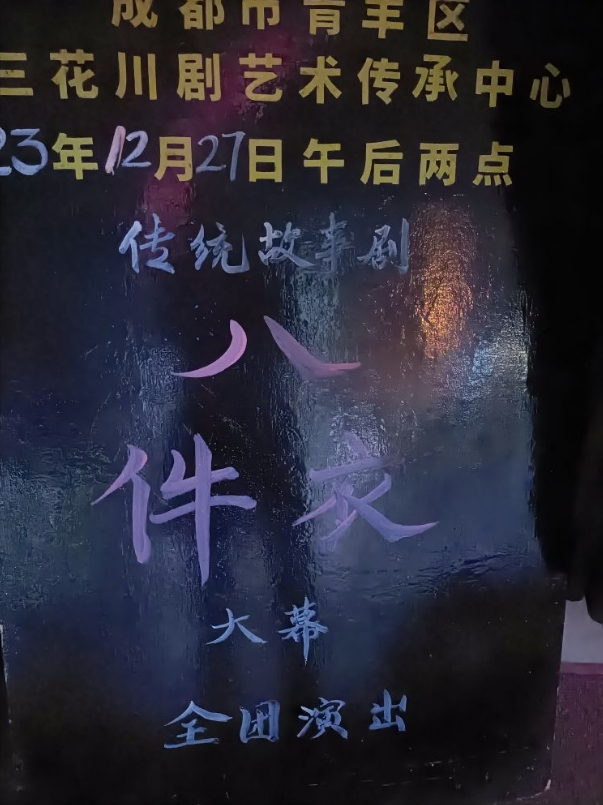 成都市青羊区
三花川剧艺术传承中心
23年12月27日午后两点
传统故事剧
八
件衣
大幕
全团演出